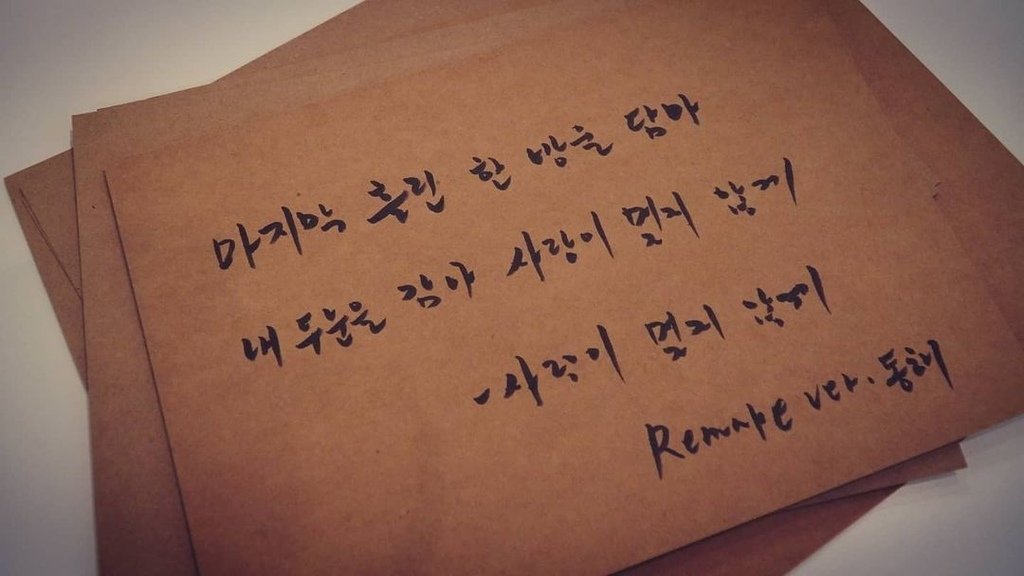 마지막 흘린 한 방울 담아
내 두눈을 감아 사랑이 멀지 않게
-사랑이 멀지 않게
Remake ver. 동해